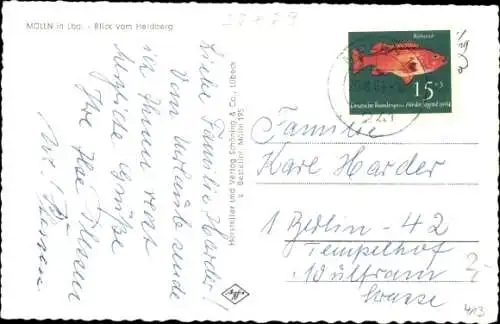 MÖLLN in Lbg. - Blick vom Heidberg
Liebe Familie Harder!
Vom Urlaub sende
ich Ihnen
herzliche Grüße
Ihre
Hersteller und Verlag Schöning & Co., Lübeck
Bestellnr. Mölln 195
Agfa
Rotbarsch
15+5
Deutsche Bundespost Für die Jugend 1964
Familie
Karl Harder
1 Berlin - 42
Tempelhof
Wulfram
Strasse
4N3